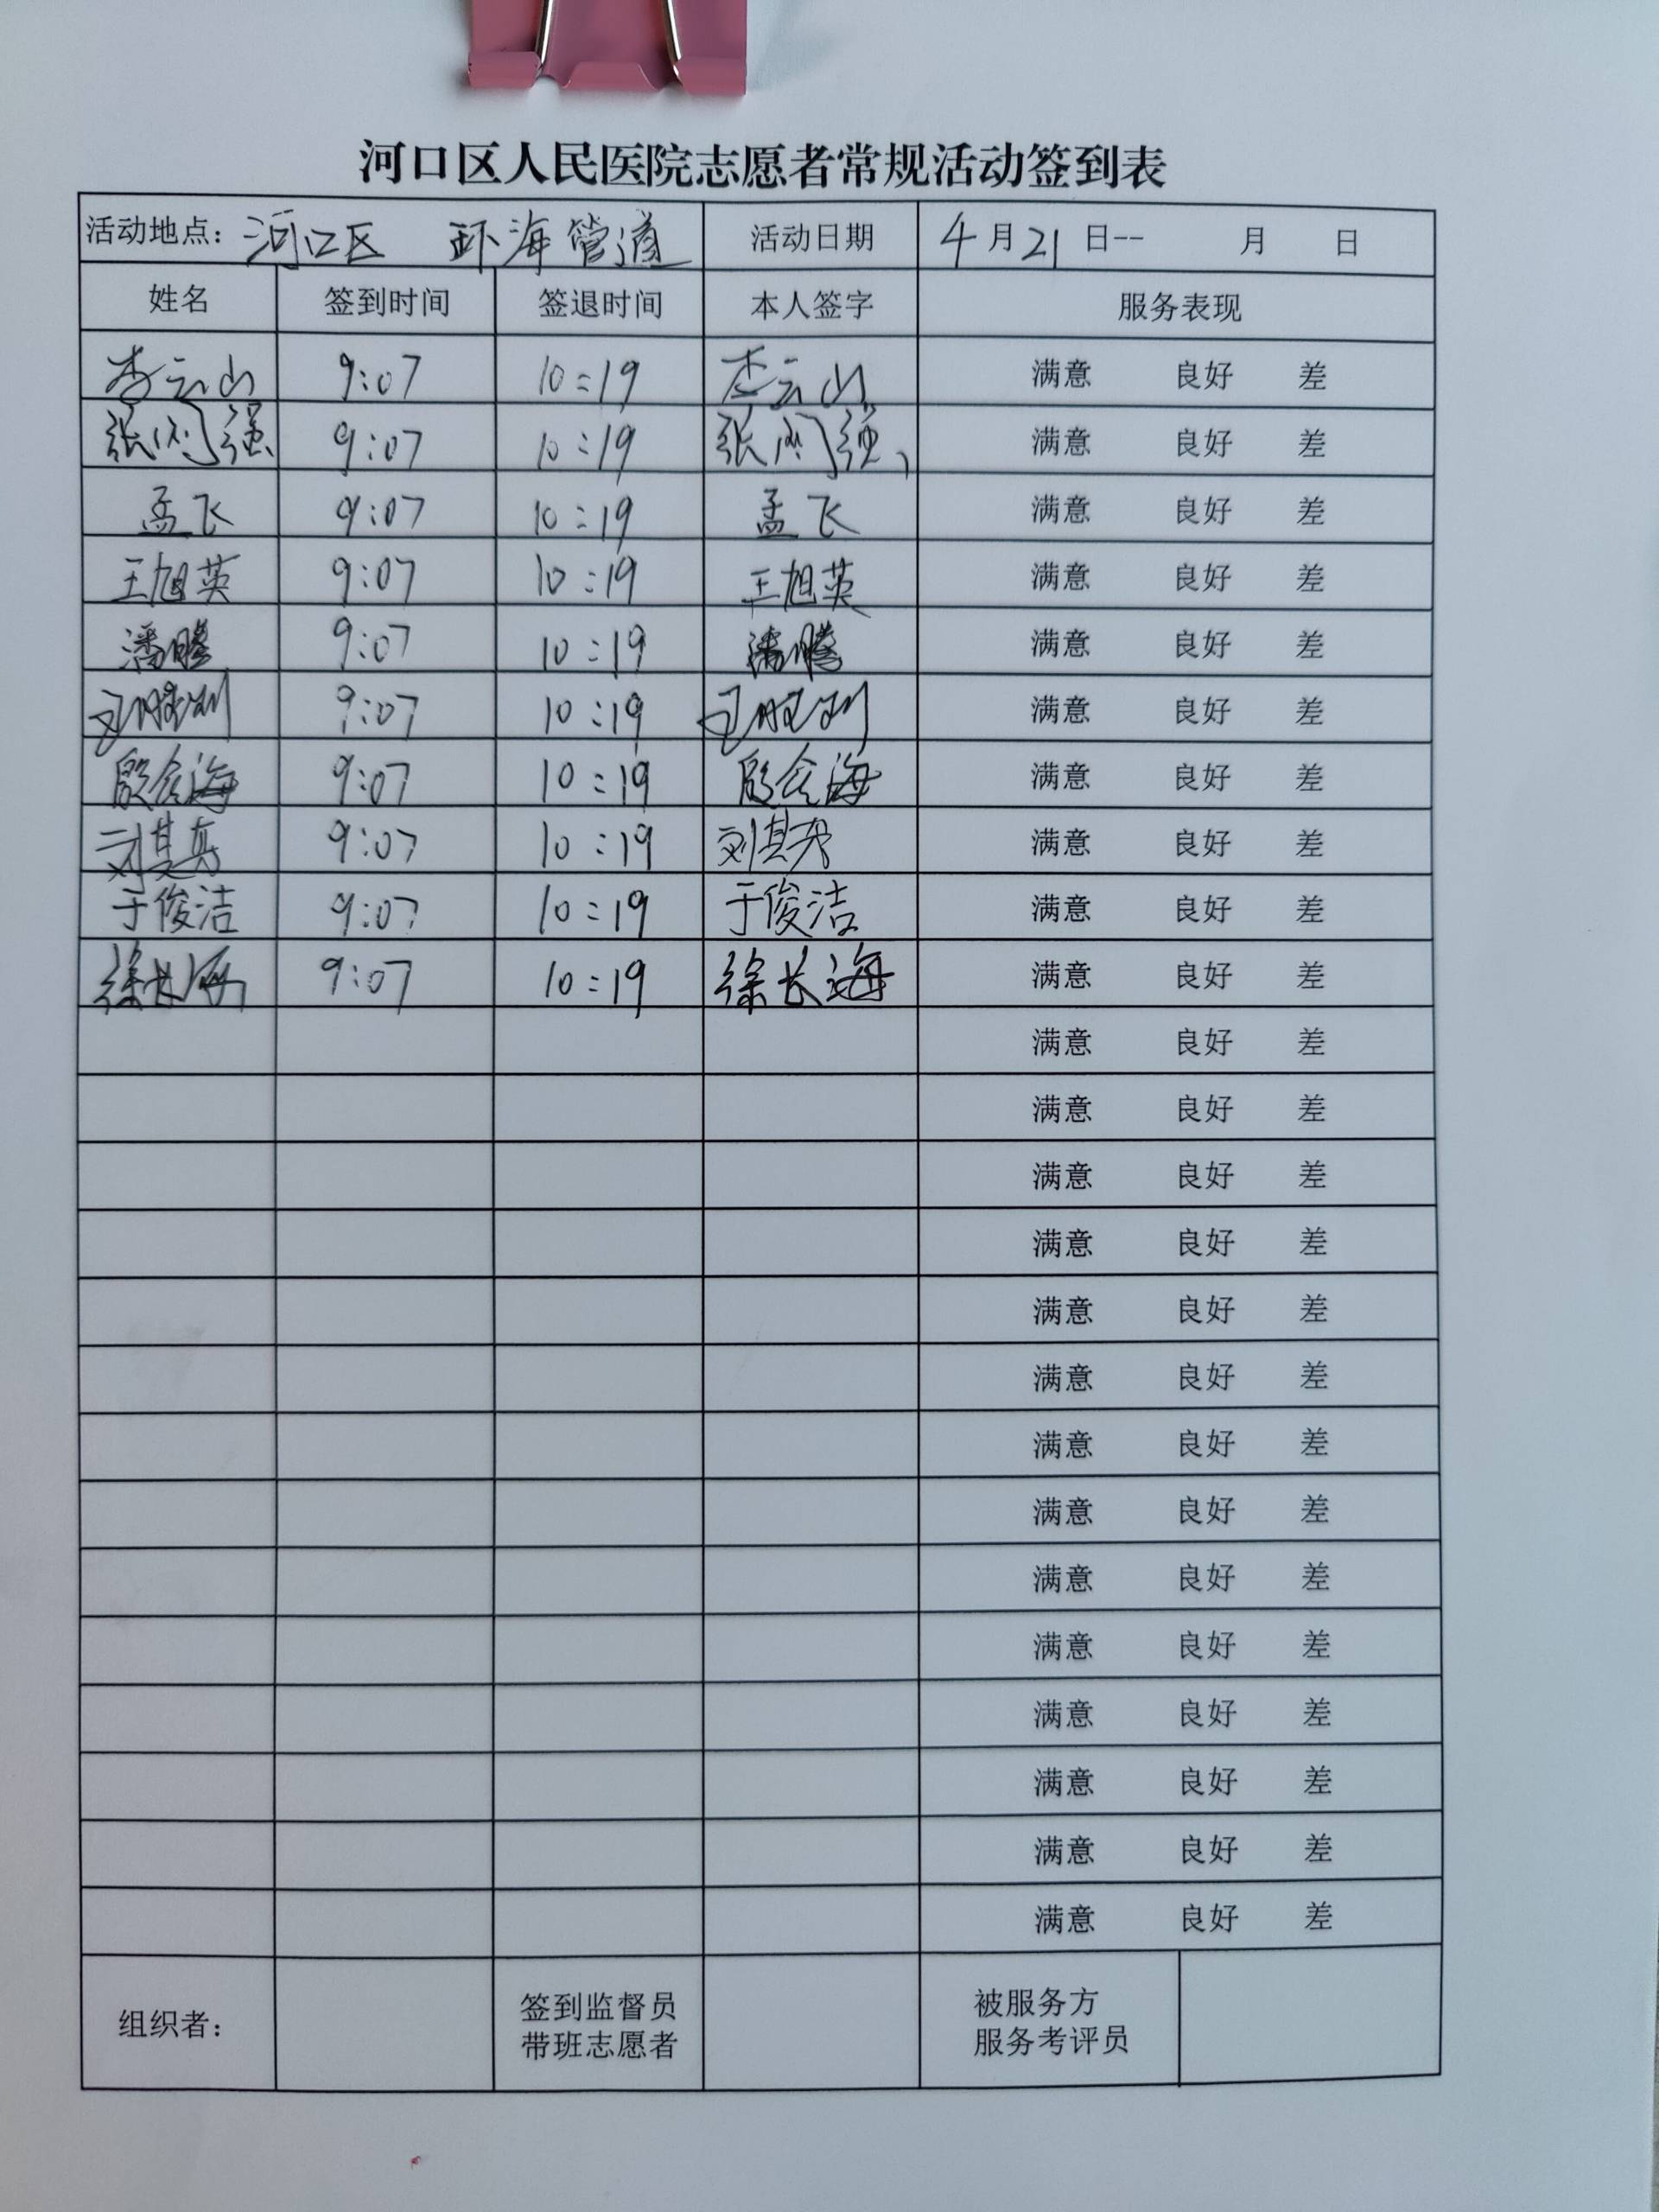 河口区人民医院志愿者常规活动签到表
活动地点：河口区 环海管道 活动日期 4月21日-- 月 日
姓名 签到时间 签退时间 本人签字 服务表现
李云山 9:07 10:19 李云山 满意 良好 差
张 强 9:07 10:19 张 强 满意 良好 差
孟飞 9:07 10:19 孟飞 满意 良好 差
王旭英 9:07 10:19 王旭英 满意 良好 差
潘腾 9:07 10:19 潘腾 满意 良好 差
王胜利 9:07 10:19 王胜利 满意 良好 差
殷会海 9:07 10:19 殷会海 满意 良好 差
刘其 9:07 10:19 刘其 满意 良好 差
于俊洁 9:07 10:19 于俊洁 满意 良好 差
徐长海 9:07 10:19 徐长海 满意 良好 差
满意 良好 差
满意 良好 差
满意 良好 差
满意 良好 差
满意 良好 差
满意 良好 差
满意 良好 差
满意 良好 差
满意 良好 差
满意 良好 差
满意 良好 差
满意 良好 差
满意 良好 差
满意 良好 差
组织者： 签到监督员 被服务方
带班志愿者 服务考评员